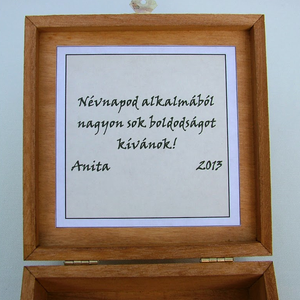 Névnapod alkalmából
nagyon sok boldodságot
kívánok!
Anita 2013